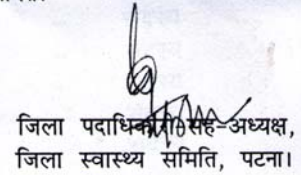 जिला पदाधिकारी-सह-अध्यक्ष,
जिला स्वास्थ्य समिति, पटना।